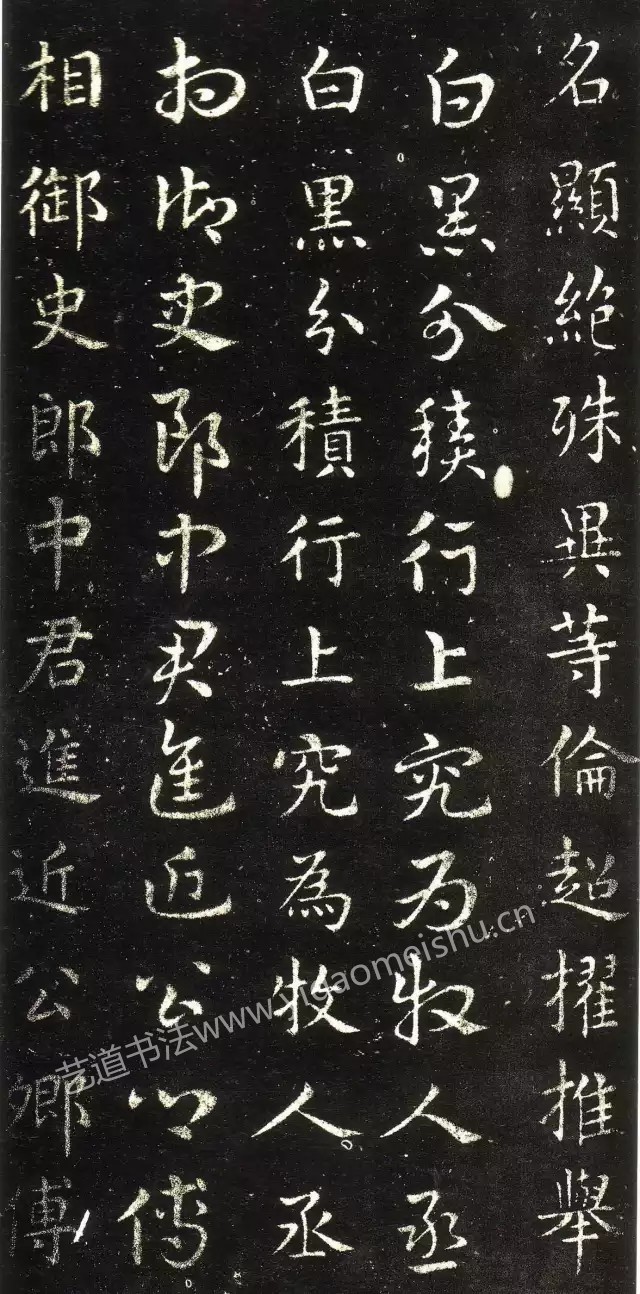 名顯絶殊異等倫超擢推舉
白黑分積行上究為牧人丞
白黑分積行上究為牧人丞
相御史郎中君進近公卿傅
相御史郎中君進近公卿傅
艺道书法www.yidaomeishu.cn